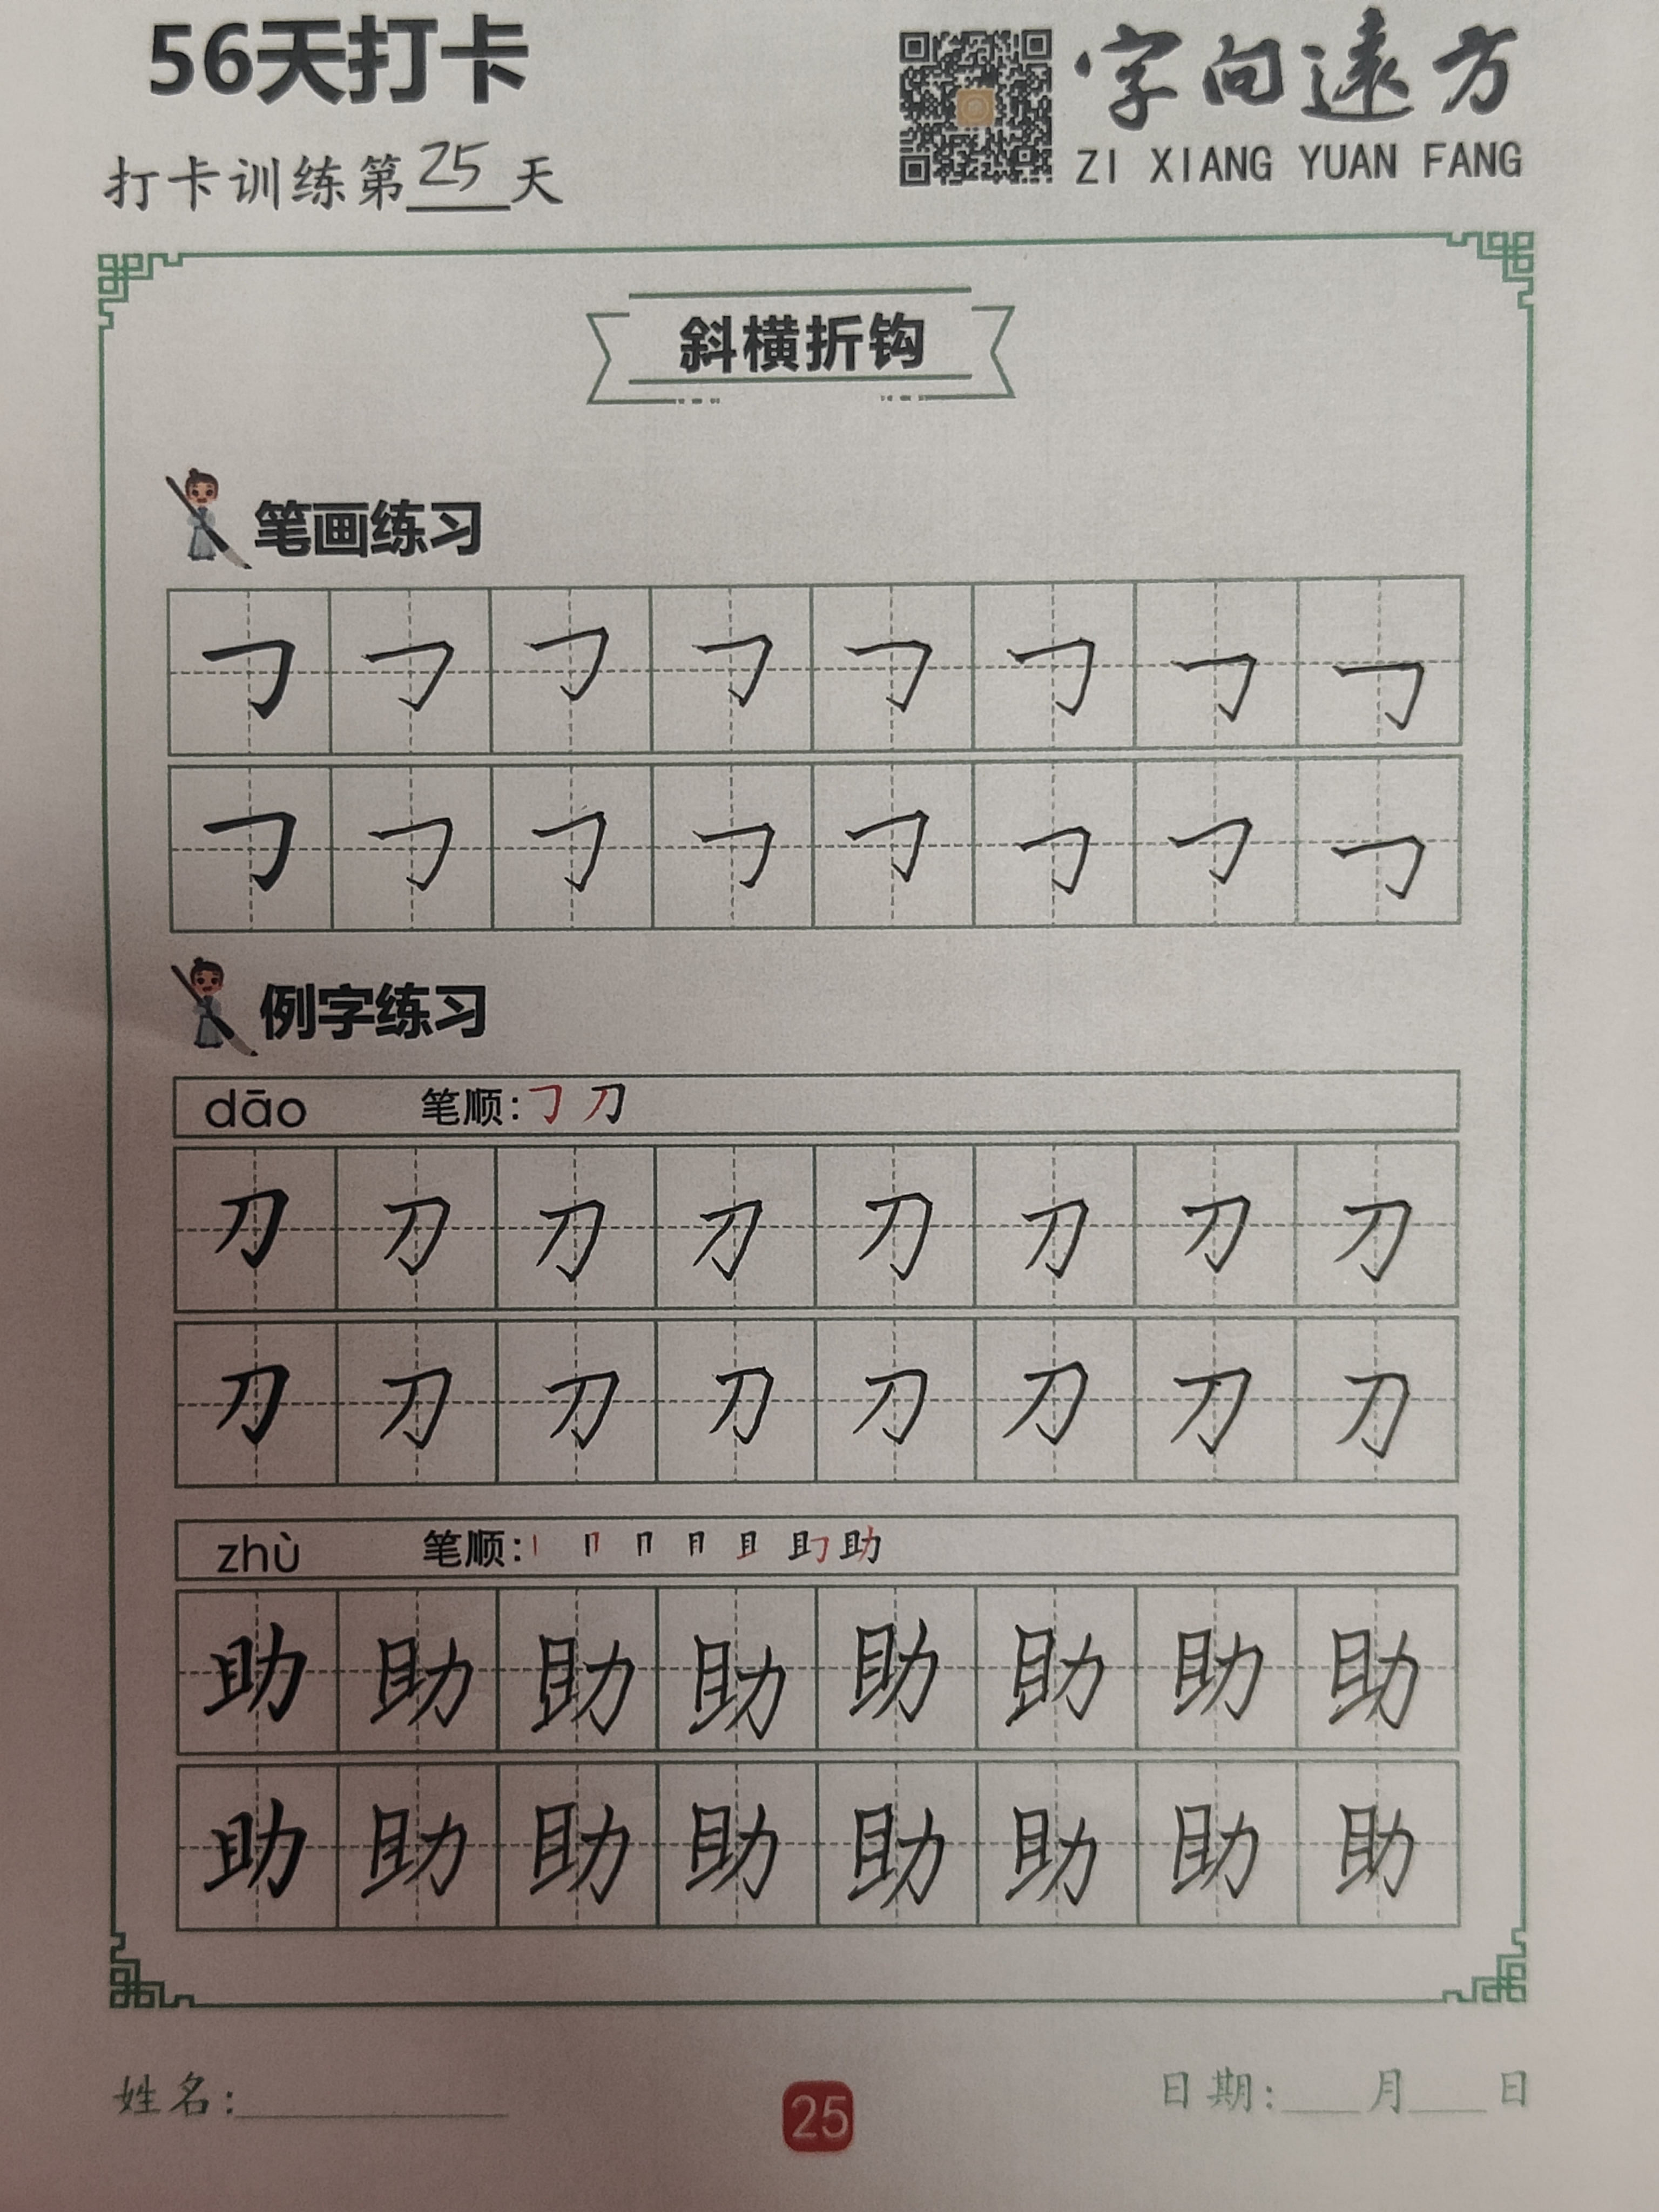 56天打卡
字向遠方
ZI XIANG YUAN FANG
打卡训练第25天
斜横折钩
笔画练习
㇆ ㇆ ㇆ ㇆ ㇆ ㇆ ㇆ ㇆
㇆ ㇆ ㇆ ㇆ ㇆ ㇆ ㇆ ㇆
例字练习
dāo 笔顺:㇆ 刀
刀 刀 刀 刀 刀 刀 刀 刀
刀 刀 刀 刀 刀 刀 刀 刀
zhù 笔顺:丨 冂 冂 月 且 助
助 助 助 助 助 助 助 助
助 助 助 助 助 助 助 助
姓名:
25
日期:___月___日